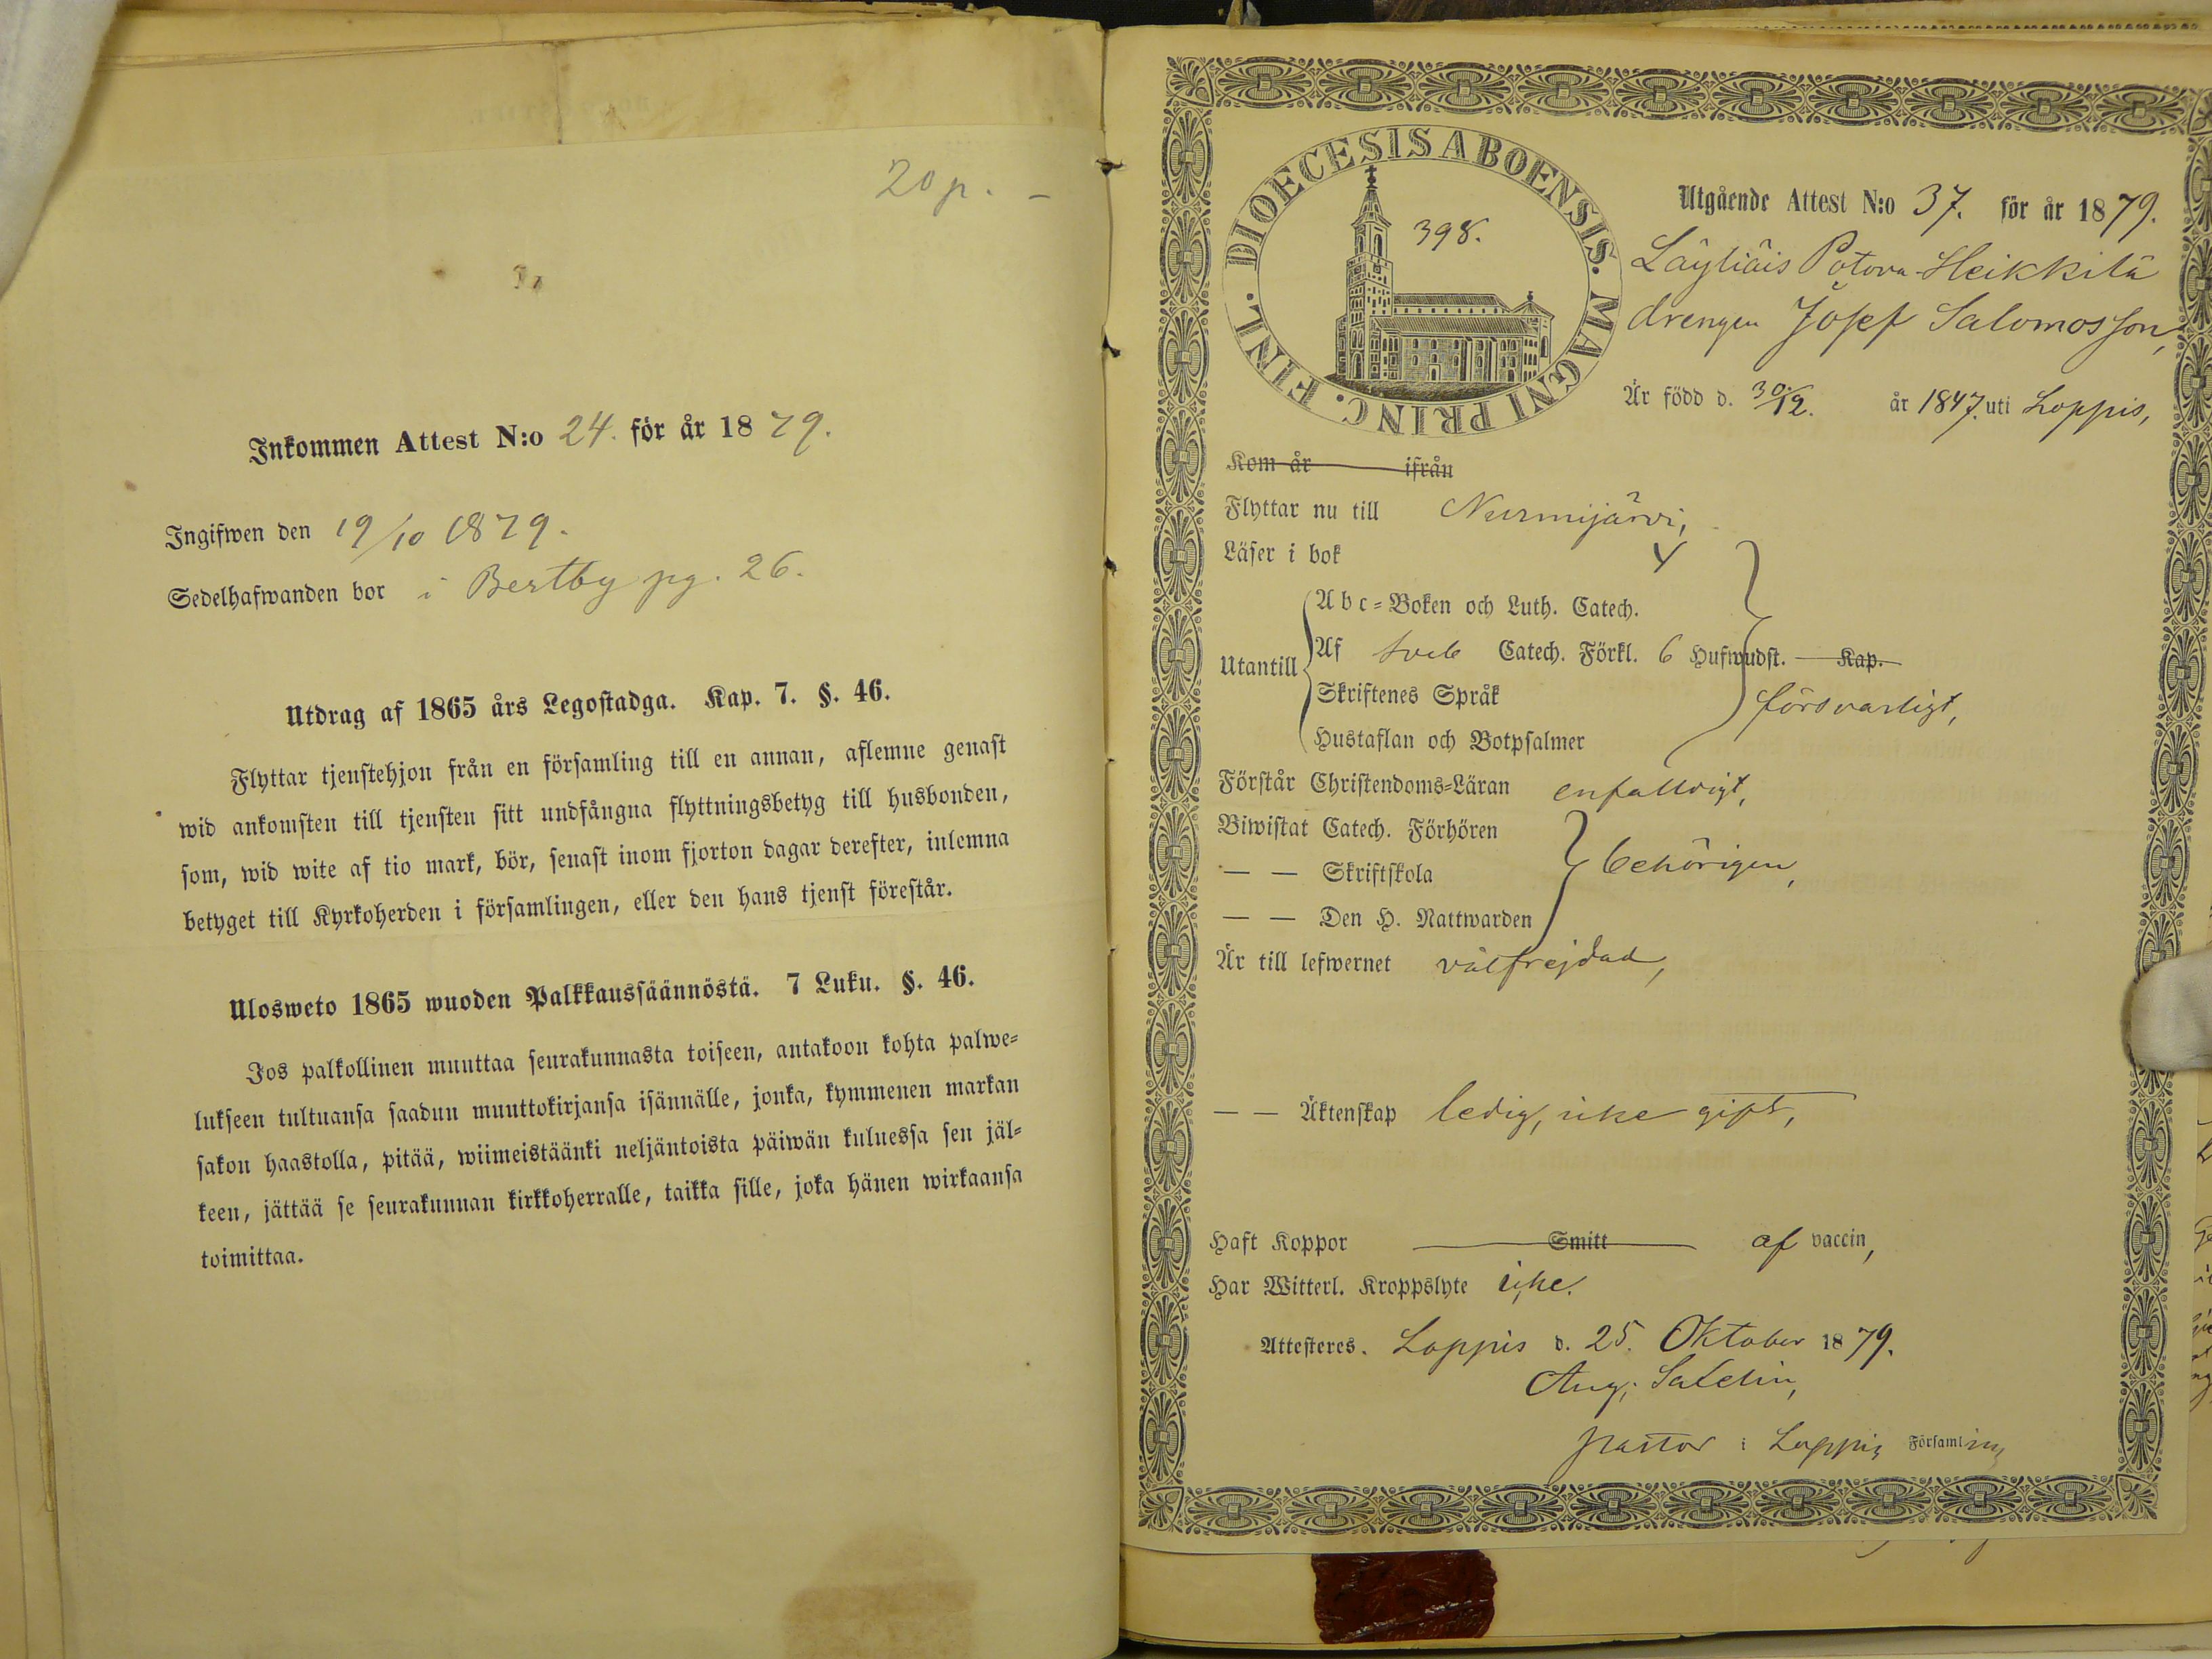 20 p. -
Inkommen Attest N:o 24. för år 1879.
Ingifwen den 19/10 1879.
Sedelhafwanden bor i Bertby pg. 26.
Utdrag af 1865 års Legostadga. Kap. 7. §. 46.
Flyttar tjenstehjon från en församling till en annan, aflemne genast
wid ankomsten till tjensten sitt undfångna flyttningsbetyg till husbonden,
som, wid wite af tio mark, bör, senast inom fjorton dagar derefter, inlemna
betyget till Kyrkoherden i församlingen, eller den hans tjenst förestår.
Ulosweto 1865 wuoden Palkkaussäännöstä. 7 Luku. §. 46.
Jos palkollinen muuttaa seurakunnasta toiseen, antakoon kohta palwe-
lukseen tultuansa saadun muuttokirjansa isännälle, jonka, kymmenen markan
sakon haastolla, pitää, wiimeistäänki neljäntoista päiwän kuluessa sen jäl-
keen, jättää se seurakunnan kirkkoherralle, taikka sille, joka hänen wirkaansa
toimittaa.
DIOECESIS ABOENSIS. MAGNI PRINC. FINL.
398.
Utgående Attest N:o 37. för år 1879.
Läyliäis Potova-Heikkilä
drengen Josef Salomosson,
Är född d. 30/12. år 1847. uti Loppis,
Kom år ifrån
Flyttar nu till Nurmijärvi,
Läser i bok
Utantill
Abc-Boken och Luth. Catech.
Af Sveb Catech. Förkl. 6 Hufwudst. Kap.
Skriftenes Språk försvarligt,
Hustaflan och Botpsalmer
Förstår Christendoms-Läran enfalldigt,
Biwistat Catech. Förhören
— — Skriftskola behörigen,
— — Den H. Nattwarden
Är till lefwernet välfrejdad,
— — Äktenskap ledig, icke gift,
Haft Koppor Smitt af vaccin,
Har Witterl. Kroppslyte icke.
Attesteres. Loppis d. 25. Oktober 1879.
Aug.
pastor i Loppis Församling